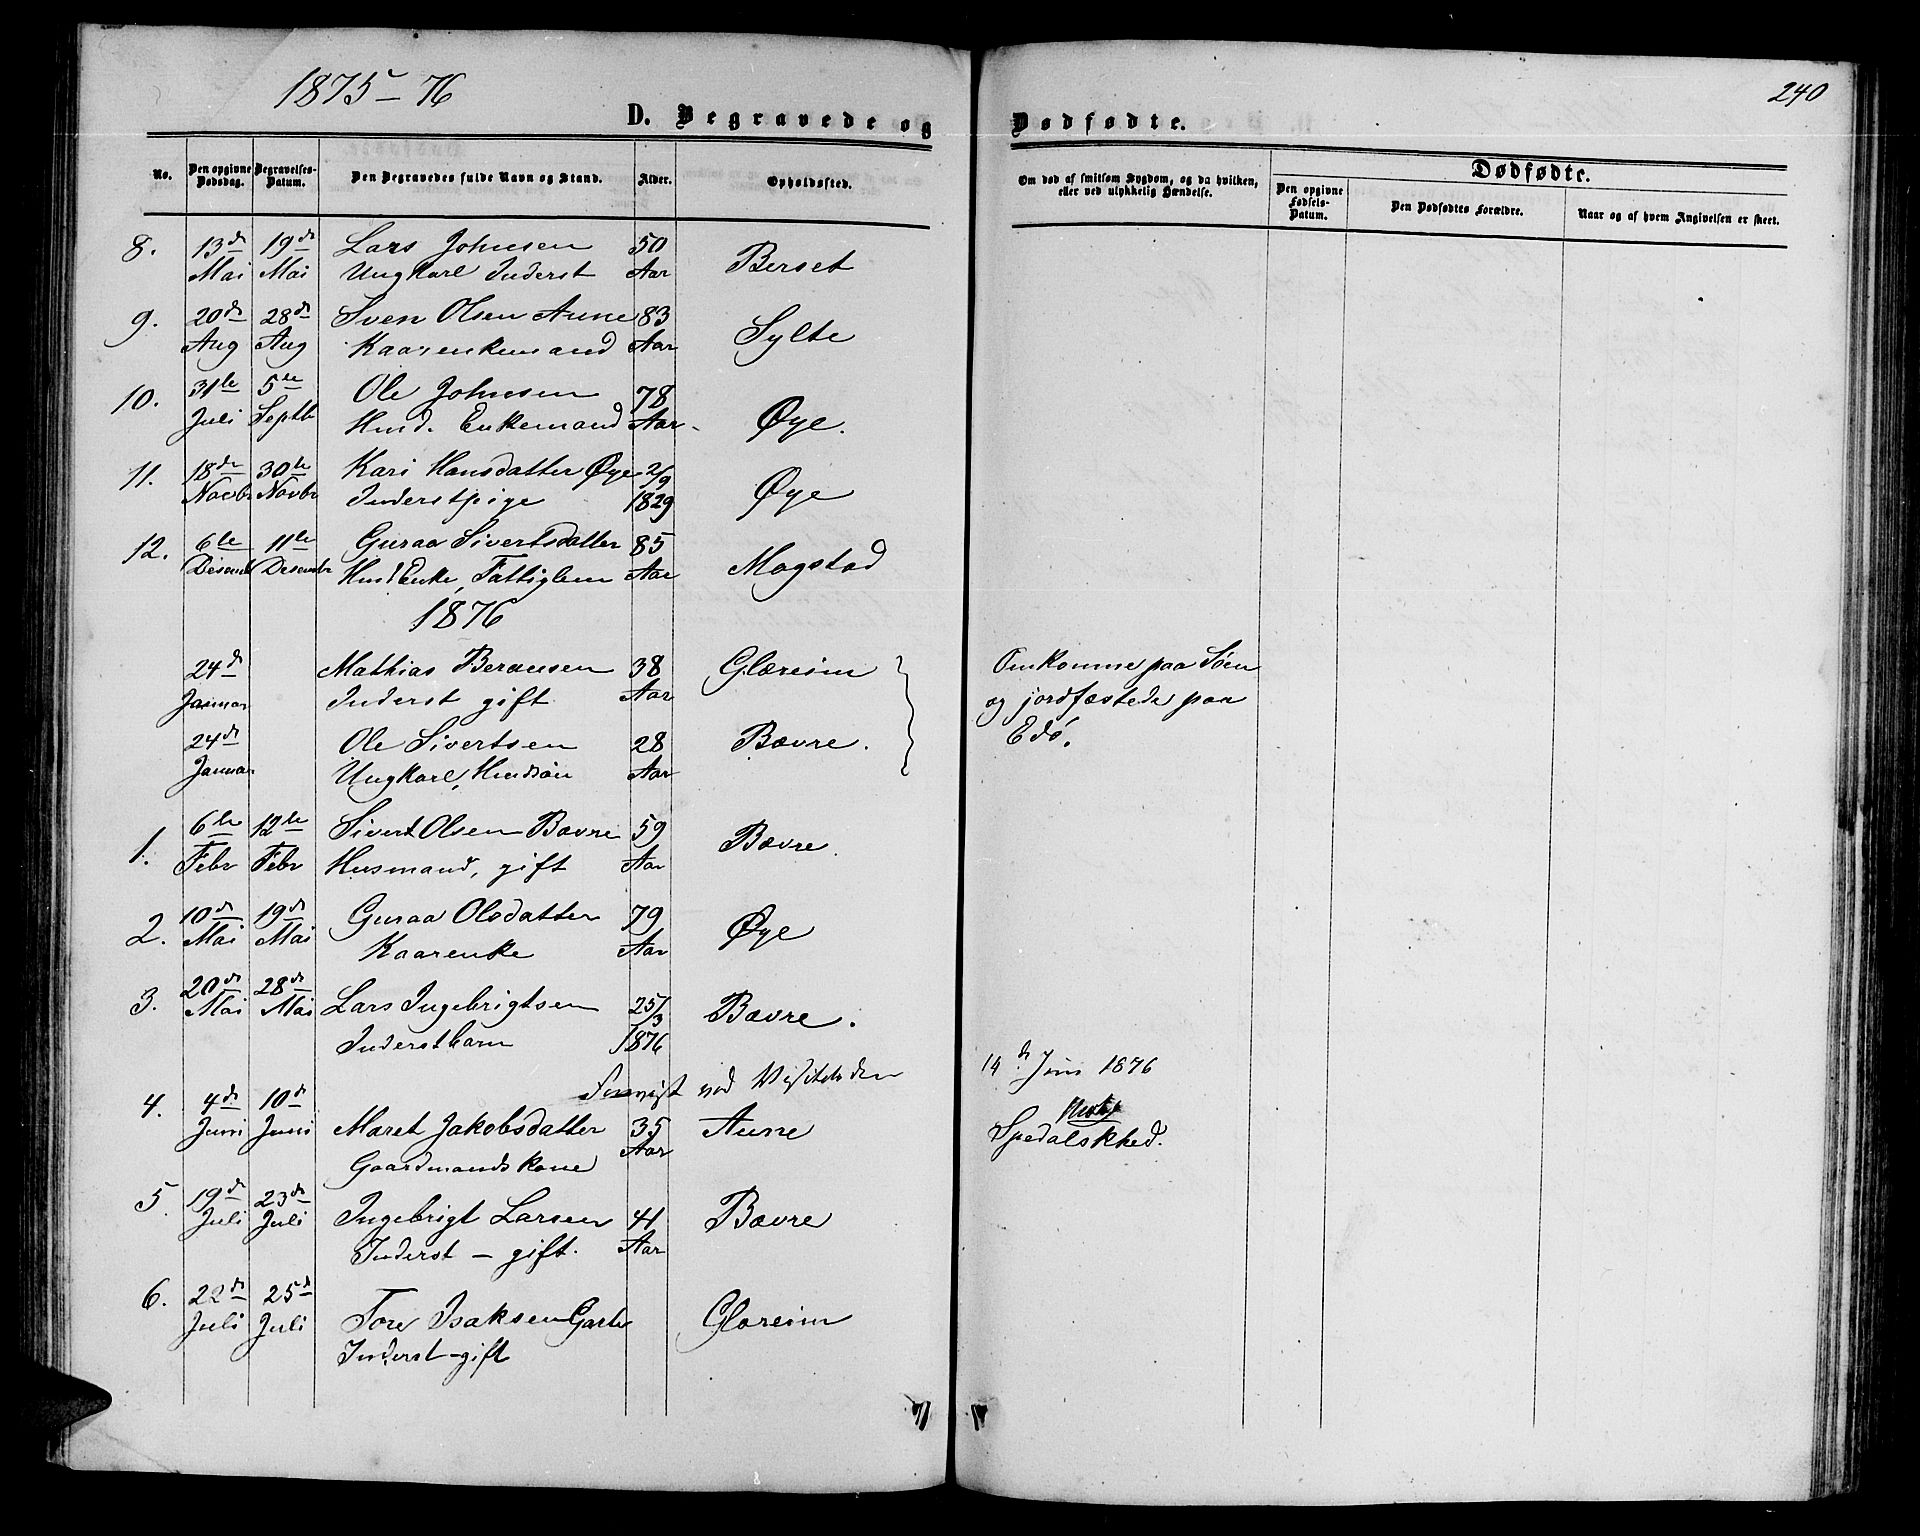 1875-76
240
D. Begravede og Dødfødte.
No. Den opgivne Dødsdag. Begravelses-Datum. Den Begravedes fulde Navn og Stand. Alder. Opholdssted. Om død af smitsom Sygdom, og da hvilken, eller ved ulykkelig Hændelse. Dødfødte. Den opgivne Fødsels-Datum. Den Dødfødtes Forældre. Naar og af hvem Angivelsen er skeet.
8. 13de 19de Lars Johnsen 50 Berset
Mai Mai Ungkarl Inderst Aar
9. 20de 28de Sven Olsen Aune 83 Sylte
Aug Aug Kaarenkemand Aar
10. 31te 5te Ole Johnsen 78 Øye.
Juli Septb Husd. Enkemand Aar
11. 18de 30te Kari Hansdatter Øye 2/9 Øye
Novbr Novbr Inderstpige 1829
12. 6te 11te Guraa Sivertsdatter 85 Mogstad
Desemb Desembr Husd Enke, Fattiglem Aar
1876
24de Mathias Berausen 38 Glæreim Omkomne paa Söen
Januar Inderst gift Aar og jordfæstede paa
24de Ole Sivertsen 28 Bævre. Edö.
Januar Ungkarl, Husdsön Aar
1. 6te 12te Sivert Olsen Bævre 59 Bævre.
Febr Febr Husmand, gift Aar
2. 10de 19de Guraa Olsdatter 79 Øye
Mai Mai Kaarenke Aar
3. 20de 28de Lars Ingebrigtsen 25/3 Bævre.
Mai Mai Inderstbarn 1876
Forevist ved Visitatsen 14de Juni 1876
4. 4de 10de Maret Jakobsdatter 35 Aune Spedalskhed.
Juni Juni Gaardmandskone Aar
5. 19de 23de Ingebrigt Larsen 41 Bævre
Juli Juli Inderst - gift. Aar
6. 22de 25de Tore Isaksen Garte Glæreim
Juli Juli Inderst - gift